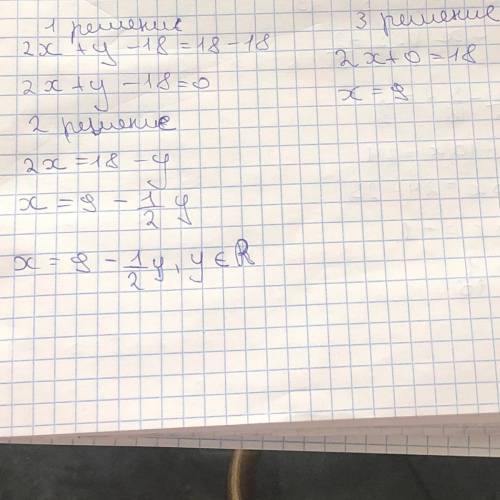 1 решение
2x + y - 18 = 18 - 18
2x + y - 18 = 0
2 решение
2x = 18 - y
x = 9 - 1/2 y
x = 9 - 1/2 y, y ∈ R
3 решение
2x + 0 = 18
x = 9